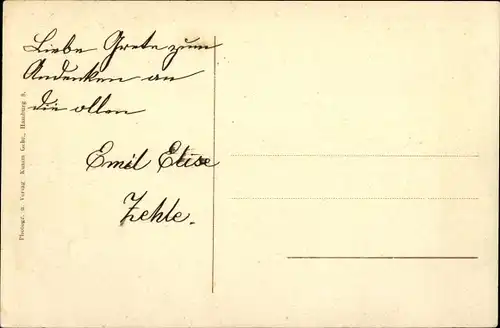 Liebe Grete zum
Andenken an
die ollen
Emil Elise
Zehle.
Photogr. u. Verlag Knam Gebr., Hamburg 8.